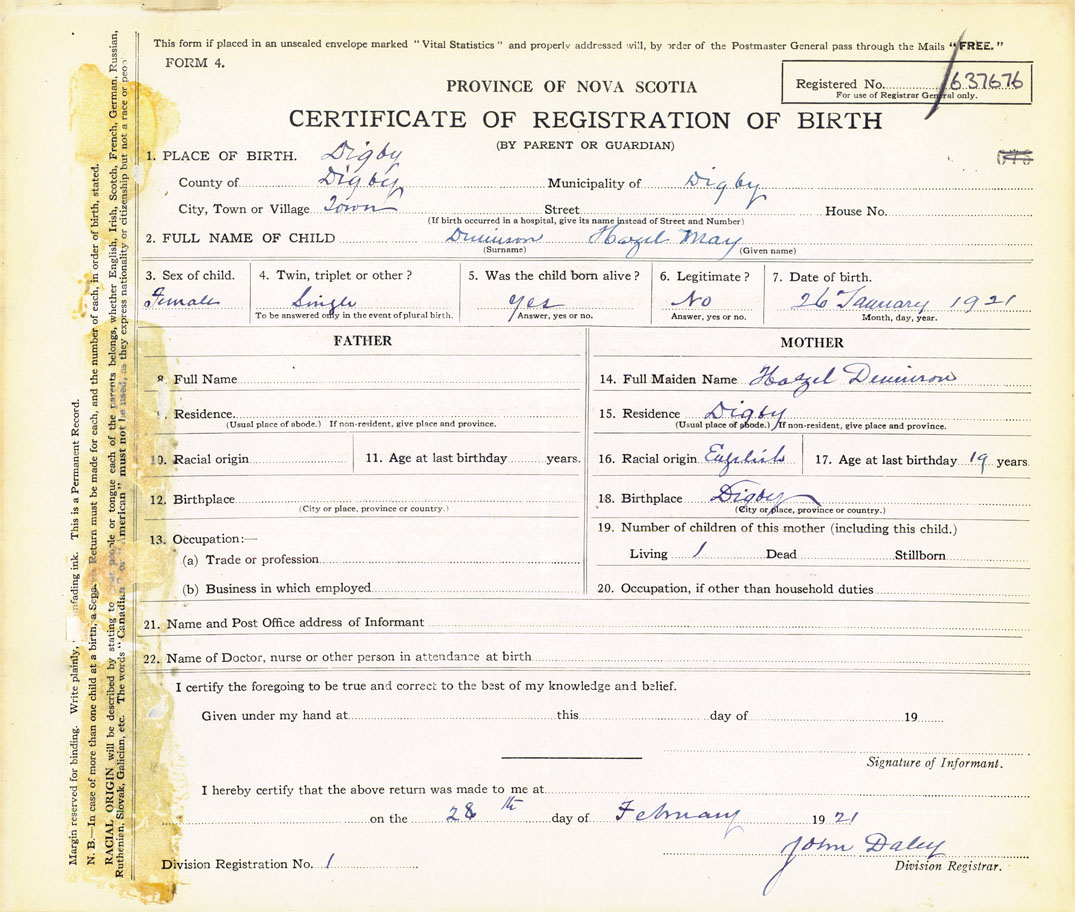 This form if placed in an unsealed envelope marked "Vital Statistics" and properly addressed will, by order of the Postmaster General pass through the Mails "FREE."
FORM 4.
PROVINCE OF NOVA SCOTIA
Registered No. 637676
For use of Registrar General only.
CERTIFICATE OF REGISTRATION OF BIRTH
(BY PARENT OR GUARDIAN)
1. PLACE OF BIRTH. Digby
County of Digby Municipality of Digby
City, Town or Village Town Street House No.
(If birth occurred in a hospital, give its name instead of Street and Number)
2. FULL NAME OF CHILD Hazel May
(Surname) (Given name)
3. Sex of child. 4. Twin, triplet or other? 5. Was the child born alive? 6. Legitimate? 7. Date of birth.
Female Single Yes No 26 January 1921
To be answered only in the event of plural birth. Answer, yes or no. Answer, yes or no. Month, day, year.
FATHER MOTHER
8. Full Name 14. Full Maiden Name Hazel
Residence. 15. Residence Digby
(Usual place of abode.) If non-resident, give place and province. (Usual place of abode.) If non-resident, give place and province.
10. Racial origin 11. Age at last birthday years. 16. Racial origin English 17. Age at last birthday 19 years
12. Birthplace 18. Birthplace Digby
(City or place, province or country.) (City or place, province or country.)
13. Occupation:— 19. Number of children of this mother (including this child.)
(a) Trade or profession Living 1 Dead Stillborn
(b) Business in which employed 20. Occupation, if other than household duties
21. Name and Post Office address of Informant
22. Name of Doctor, nurse or other person in attendance at birth
I certify the foregoing to be true and correct to the best of my knowledge and belief.
Given under my hand at this day of 19
Signature of Informant.
I hereby certify that the above return was made to me at
on the 28th day of February 1921
John Daley
Division Registration No. 1 Division Registrar.
Margin reserved for binding. Write plainly, unfading ink. This is a Permanent Record.
N. B.—In case of more than one child at a birth, a Return must be made for each, and the number of each, in order of birth, stated.
RACIAL ORIGIN will be described by stating to people or tongue each of the parents belongs, whether English, Irish, Scotch, French, German, Russian,
Ruthenian, Slovak, Galician, etc. The words "Canadian" or "American" must not be used, as they express nationality or citizenship but not a race or people